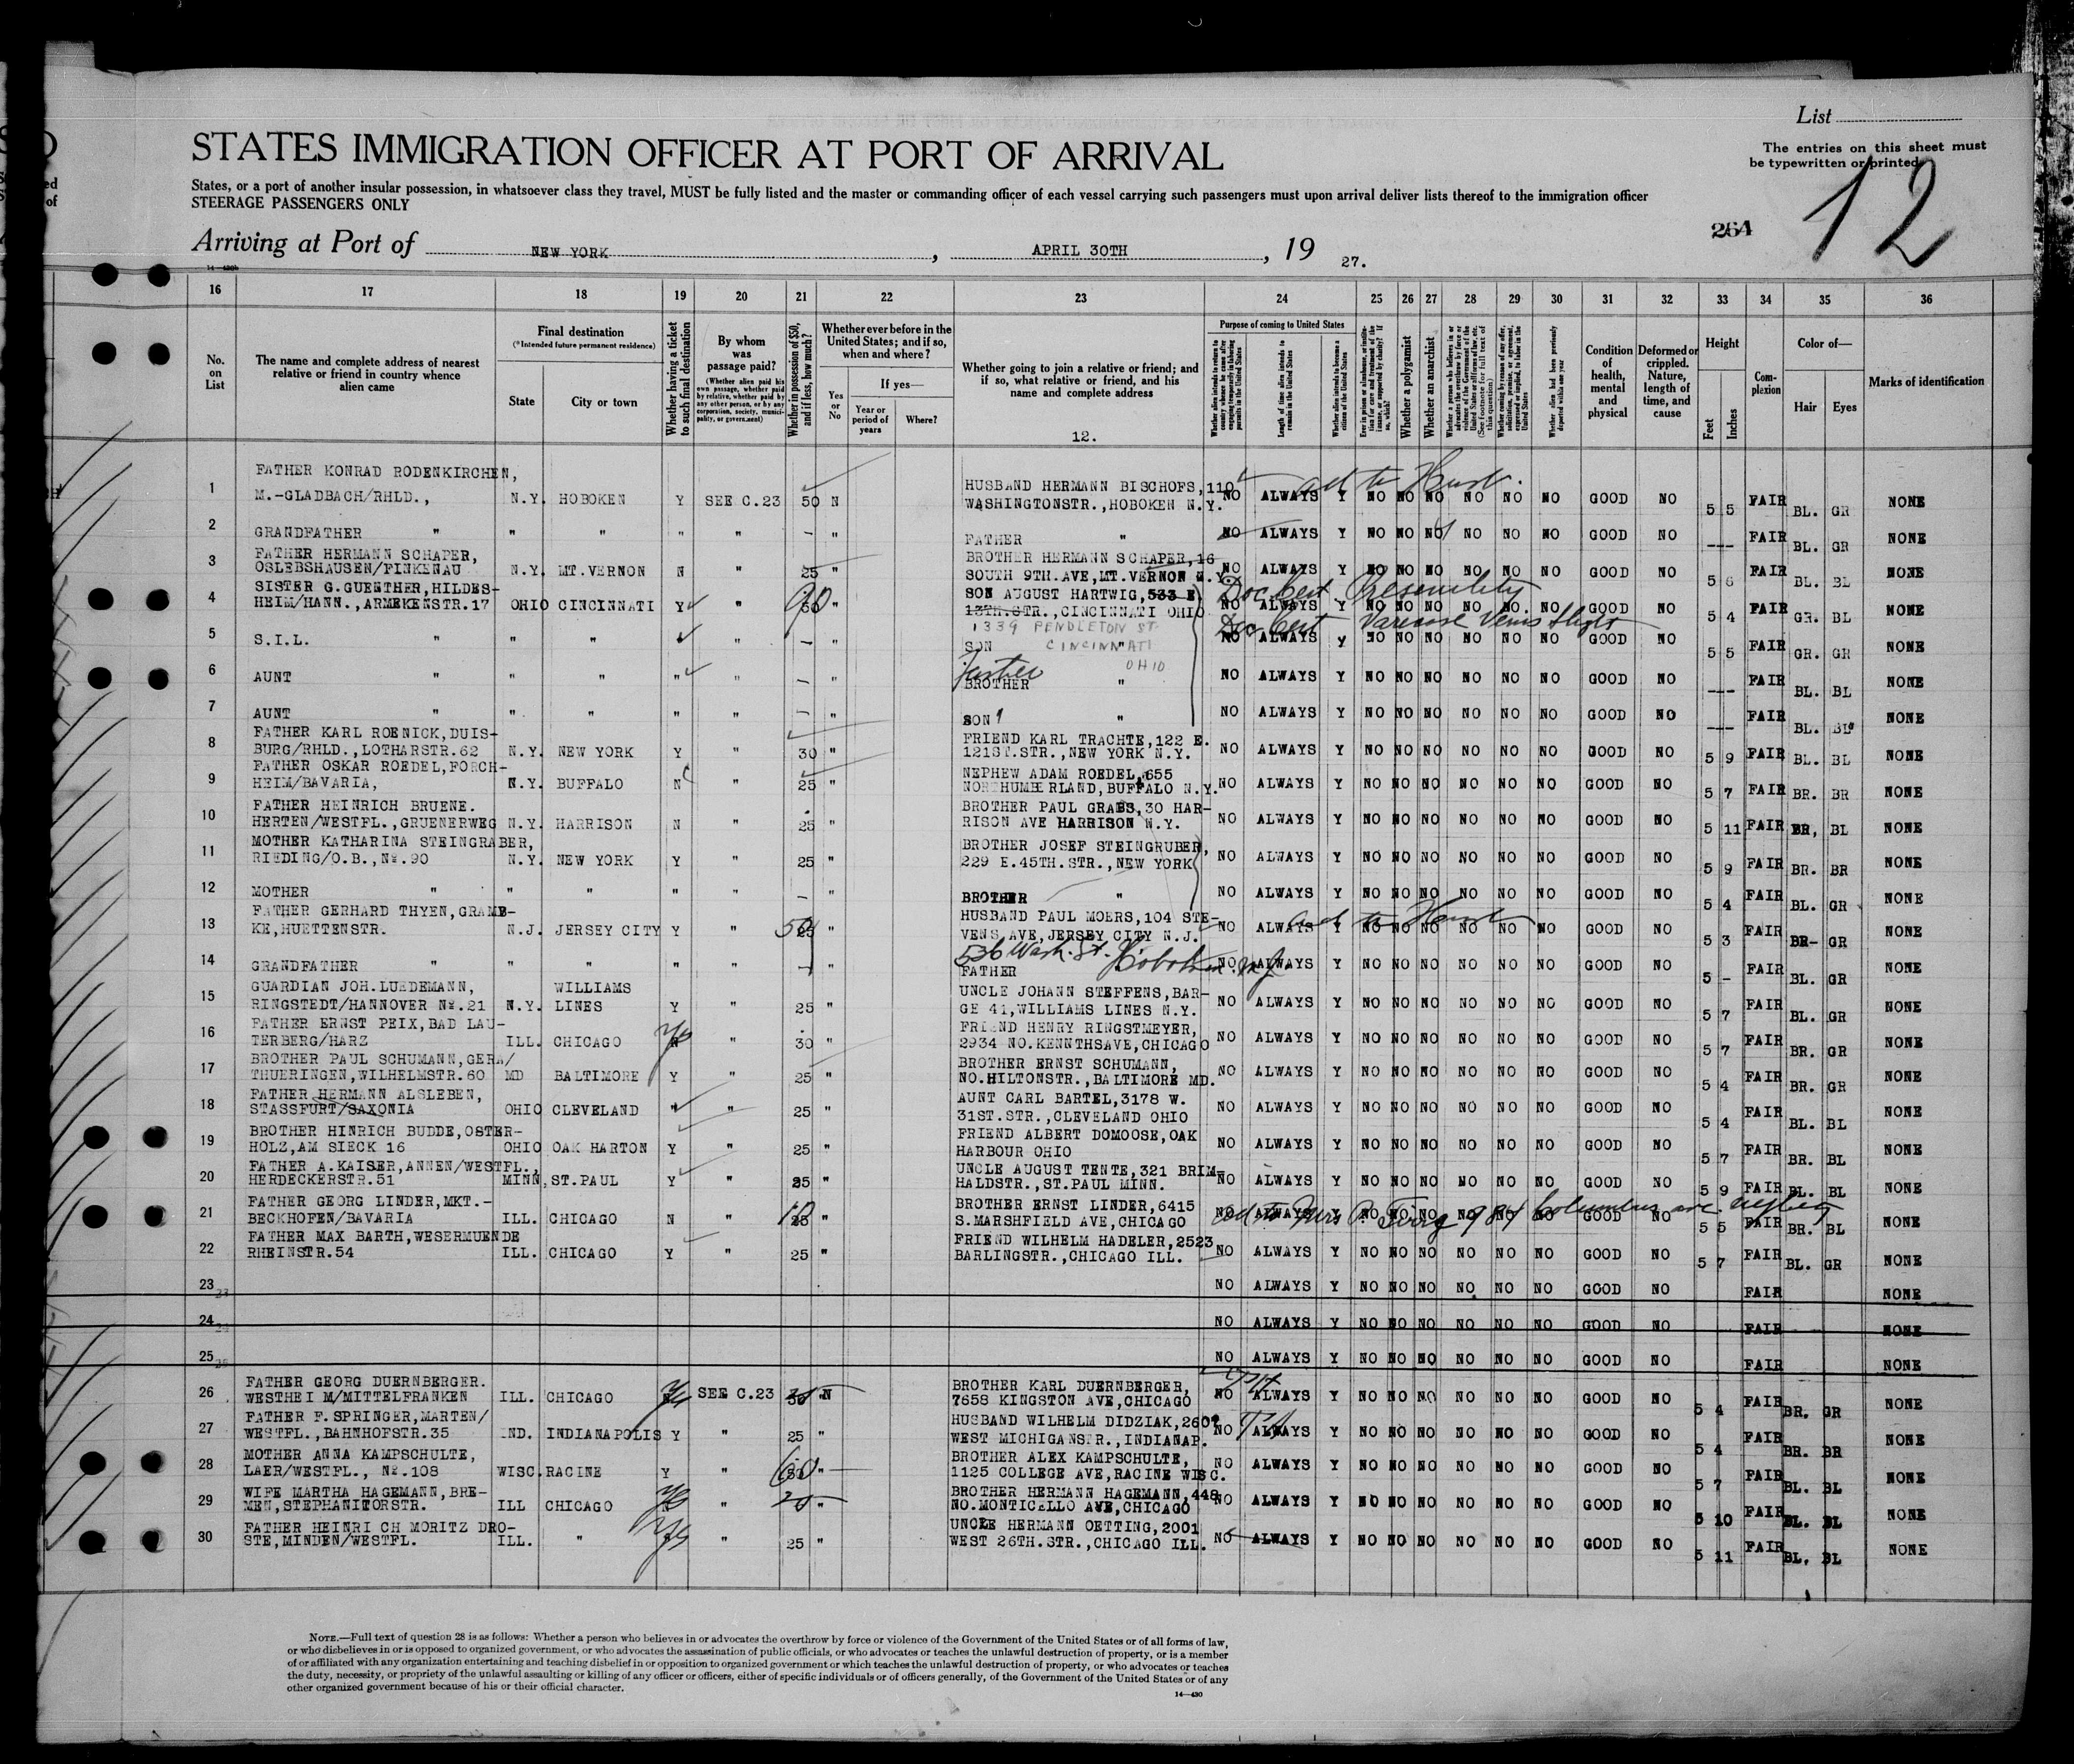 List
The entries on this sheet must
be typewritten or printed
STATES IMMIGRATION OFFICER AT PORT OF ARRIVAL
States, or a port of another insular possession, in whatsoever class they travel, MUST be fully listed and the master or commanding officer of each vessel carrying such passengers must upon arrival deliver lists thereof to the immigration officer
STEERAGE PASSENGERS ONLY
264
12
Arriving at Port of NEW YORK , APRIL 30TH , 19 27.
16 17 18 19 20 21 22 23 24 25 26 27 28 29 30 31 32 33 34 35 36
No. on List
The name and complete address of nearest relative or friend in country whence alien came
Final destination
(*Intended future permanent residence)
State
City or town
Whether having a ticket to such final destination
By whom was passage paid?
(Whether alien paid his own passage, whether paid by relative, whether paid by any other person, or by any corporation, society, municipality, or government)
Whether in possession of $50, and if less, how much?
Whether ever before in the United States; and if so, when and where?
Yes or No
If yes—
Year or period of years
Where?
Whether going to join a relative or friend; and if so, what relative or friend, and his name and complete address
12.
Purpose of coming to United States
Length of time alien intends to remain in the United States
Whether alien intends to become a citizen of the United States
Whether a polygamist
Whether an anarchist
Condition of health, mental and physical
Deformed or crippled. Nature, length of time, and cause
Height
Feet
Inches
Complexion
Color of—
Hair
Eyes
Marks of identification
FATHER KONRAD RODENKIRCHEN, HUSBAND HERMANN BISCHOFS, 110
1 M.-GLADBACH/RHLD., N.Y. HOBOKEN Y SEE C.23 50 N WASHINGTONSTR., HOBOKEN N.Y. NO ALWAYS Y NO NO NO NO NO NO GOOD NO 5 5 FAIR BL. GR NONE
2 GRANDFATHER " " " " " — " FATHER " NO ALWAYS Y NO NO NO NO NO NO GOOD NO --- FAIR BL. GR NONE
FATHER HERMANN SCHAPER, BROTHER HERMANN SCHAPER, 16
3 OSLEBSHAUSEN/FINKENAU N.Y. MT.VERNON N " 25 " SOUTH 9TH.AVE, MT.VERNON N.Y. NO ALWAYS Y NO NO NO NO NO NO GOOD NO 5 6 FAIR BL. BL NONE
SISTER G.GUENTHER, HILDES- SON AUGUST HARTWIG, 533 E Doc Cert
4 HEIM/HANN., ARMEKENSTR.17 OHIO CINCINNATI Y " 90 " 13TH.STR., CINCINNATI OHIO NO ALWAYS Y NO NO NO NO NO NO GOOD NO 5 4 FAIR GR. BL NONE
1339 PENDLETON ST. CINCINNATI OHIO Doc Cert Varicose Veins slight
5 S.I.L. " " " " — " SON " NO ALWAYS y NO NO NO NO NO NO GOOD NO 5 5 FAIR GR. GR NONE
6 AUNT " " " " " — " BROTHER " NO ALWAYS Y NO NO NO NO NO NO GOOD NO --- FAIR BL. BL NONE
7 AUNT " " " " " — " SON " NO ALWAYS Y NO NO NO NO NO NO GOOD NO --- FAIR BL. BL NONE
FATHER KARL ROENICK, DUIS- FRIEND KARL TRACHTE, 122 E.
8 BURG/RHLD., LOTHARSTR.62 N.Y. NEW YORK Y " 30 " 121ST.STR., NEW YORK N.Y. NO ALWAYS Y NO NO NO NO NO NO GOOD NO 5 9 FAIR BL. BL NONE
FATHER OSKAR ROEDEL, FORCH- NEPHEW ADAM ROEDEL, 655
9 HEIM/BAVARIA, N.Y. BUFFALO N " 25 " NORTHUMBERLAND, BUFFALO N.Y. NO ALWAYS Y NO NO NO NO NO NO GOOD NO 5 7 FAIR BR. BR NONE
FATHER HEINRICH BRUENE. BROTHER PAUL GRABS, 30 HAR-
10 HERTEN/WESTFL., GRUENERWEG N.Y. HARRISON N " 25 " RISON AVE HARRISON N.Y. NO ALWAYS Y NO NO NO NO NO NO GOOD NO 5 11 FAIR BR, BL NONE
MOTHER KATHARINA STEINGRABER, BROTHER JOSEF STEINGRUBER,
11 RIEDING/O.B., No.90 N.Y. NEW YORK Y " 25 " 229 E.45TH.STR., NEW YORK NO ALWAYS Y NO NO NO NO NO NO GOOD NO 5 9 FAIR BR. BR NONE
12 MOTHER " " " " " — " BROTHER " NO ALWAYS Y NO NO NO NO NO NO GOOD NO 5 4 FAIR BL. GR NONE
FATHER GERHARD THYEN, GRAMB- HUSBAND PAUL MOERS, 104 STE-
13 KE, HUETTENSTR. N.J. JERSEY CITY Y " 50 " VENS AVE, JERSEY CITY N.J. NO ALWAYS Y NO NO NO NO NO NO GOOD NO 5 3 FAIR BR- GR NONE
536 Wash. St. Hoboken N.J.
14 GRANDFATHER " " " " " — " FATHER NO ALWAYS Y NO NO NO NO NO NO GOOD NO 5 - FAIR BL. GR NONE
GUARDIAN JOH.LUEDEMANN, WILLIAMS UNCLE JOHANN STEFFENS, BAR-
15 RINGSTEDT/HANNOVER No.21 N.Y. LINES Y " 25 " GE 41, WILLIAMS LINES N.Y. NO ALWAYS Y NO NO NO NO NO NO GOOD NO 5 7 FAIR BL. GR NONE
FATHER ERNST PEIX, BAD LAU- FRIEND HENRY RINGSTMEYER,
16 TERBERG/HARZ ILL. CHICAGO N " 30 " 2934 NO.KENNTHSAVE, CHICAGO NO ALWAYS Y NO NO NO NO NO NO GOOD NO 5 7 FAIR BR. GR NONE
BROTHER PAUL SCHUMANN, GERA/ BROTHER ERNST SCHUMANN,
17 THUERINGEN, WILHELMSTR.60 MD BALTIMORE Y " 25 " NO.HILTONSTR., BALTIMORE MD. NO ALWAYS Y NO NO NO NO NO NO GOOD NO 5 4 FAIR BR. GR NONE
FATHER HERMANN ALSLEBEN, AUNT CARL BARTEL, 3178 W.
18 STASSFURT/SAXONIA OHIO CLEVELAND " " 25 " 31ST.STR., CLEVELAND OHIO NO ALWAYS Y NO NO NO NO NO NO GOOD NO 5 4 FAIR BL. BL NONE
BROTHER HINRICH BUDDE, OSTER- FRIEND ALBERT DOMOOSE, OAK
19 HOLZ, AM SIECK 16 OHIO OAK HARTON Y " 25 " HARBOUR OHIO NO ALWAYS Y NO NO NO NO NO NO GOOD NO 5 7 FAIR BR. BL NONE
FATHER A.KAISER, ANNEN/WESTFL., UNCLE AUGUST TENTE, 321 BRIM-
20 HERDECKERSTR.51 MINN, ST.PAUL Y " 25 " HALDSTR., ST.PAUL MINN. NO ALWAYS Y NO NO NO NO NO NO GOOD NO 5 9 FAIR BL. BL NONE
FATHER GEORG LINDER, MKT.- BROTHER ERNST LINDER, 6415
21 BECKHOFEN/BAVARIA ILL. CHICAGO N " " S.MARSHFIELD AVE, CHICAGO NO ALWAYS Y NO NO NO NO NO NO GOOD NO 5 5 FAIR BR. BL NONE
FATHER MAX BARTH, WESERMUENDE FRIEND WILHELM HADELER, 2523
22 RHEINSTR.54 ILL. CHICAGO Y " 25 " BARLINGSTR., CHICAGO ILL. NO ALWAYS Y NO NO NO NO NO NO GOOD NO 5 7 FAIR BL. GR NONE
23 NO ALWAYS Y NO NO NO NO NO NO GOOD NO FAIR NONE
24 NO ALWAYS Y NO NO NO NO NO NO GOOD NO FAIR NONE
25 NO ALWAYS Y NO NO NO NO NO NO GOOD NO FAIR NONE
FATHER GEORG DUERNBERGER. BROTHER KARL DUERNBERGER,
26 WESTHEI M/MITTELFRANKEN ILL. CHICAGO SEE C.23 30 N 7658 KINGSTON AVE, CHICAGO NO ALWAYS Y NO NO NO NO NO NO GOOD NO 5 4 FAIR BR. GR NONE
FATHER F.SPRINGER, MARTEN/ HUSBAND WILHELM DIDZIAK, 2609
27 WESTFL., BAHNHOFSTR.35 IND. INDIANAPOLIS Y " 25 " WEST MICHIGANSTR., INDIANAP. NO ALWAYS Y NO NO NO NO NO NO GOOD NO 5 4 FAIR BR. BR NONE
MOTHER ANNA KAMPSCHULTE, BROTHER ALEX KAMPSCHULTE,
28 LAER/WESTFL., No.108 WISC. RACINE Y " 60 " 1125 COLLEGE AVE, RACINE WISC. NO ALWAYS Y NO NO NO NO NO NO GOOD NO 5 7 FAIR BL. BL NONE
WIFE MARTHA HAGEMANN, BRE- BROTHER HERMANN HAGEMANN, 448
29 MEN, STEPHANITORSTR. ILL CHICAGO " " NO.MONTICELLO AVE, CHICAGO NO ALWAYS Y NO NO NO NO NO NO GOOD NO 5 10 FAIR BL. BL NONE
FATHER HEINRI CH MORITZ DRO- UNCLE HERMANN OETTING, 2001
30 STE, MINDEN/WESTFL. ILL. " " 25 " WEST 26TH.STR., CHICAGO ILL. NO ALWAYS Y NO NO NO NO NO NO GOOD NO 5 11 FAIR BL. BL NONE
NOTE.—Full text of question 28 is as follows: Whether a person who believes in or advocates the overthrow by force or violence of the Government of the United States or of all forms of law,
or who disbelieves in or is opposed to organized government, or who advocates the assassination of public officials, or who advocates or teaches the unlawful destruction of property, or is a member
of or affiliated with any organization entertaining and teaching disbelief in or opposition to organized government or which teaches the unlawful destruction of property, or who advocates or teaches
the duty, necessity, or propriety of the unlawful assaulting or killing of any officer or officers, either of specific individuals or of officers generally, of the Government of the United States or of any
other organized government because of his or their official character.
14—430